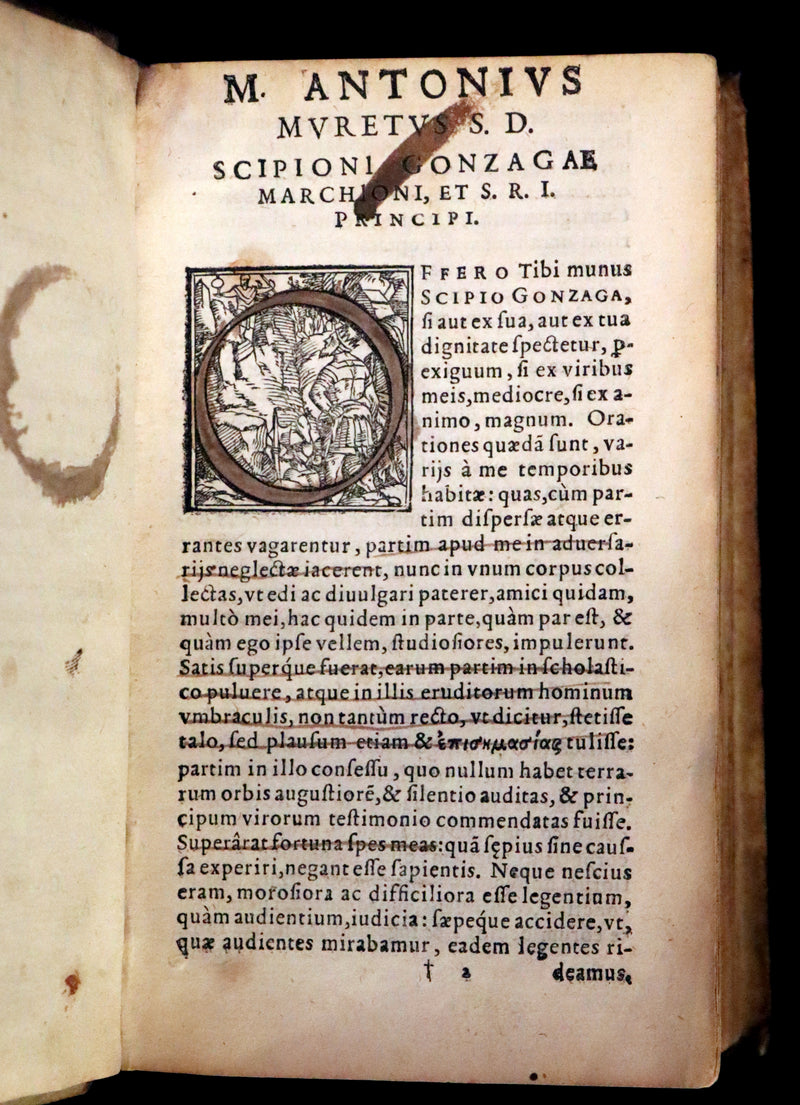 M. ANTONIVS
MVRETVS S. D.
SCIPIONI GONZAGAE
MARCHIONI, ET S. R. I.
PRINCIPI.
OFFERO Tibi munus
SCIPIO GONZAGA,
ſi aut ex ſua, aut ex tua
dignitate ſpectetur, ꝑ-
exiguum, ſi ex viribus
meis, mediocre, ſi ex a-
nimo, magnum. Ora-
tiones quædã ſunt, va-
rijs à me temporibus
habitæ: quas, cùm par-
tim diſperſæ atque er-
rantes vagarentur, partim apud me in aduerſa-
rijs neglectæ iacerent, nunc in vnum corpus col-
lectas, vt edi ac diuulgari paterer, amici quidam,
multò mei, hac quidem in parte, quàm par eſt, &
quàm ego ipſe vellem, ſtudioſiores, impulerunt.
Satis ſuperq́ue fuerat, earum partim in ſcholaſti-
co puluere, atque in illis eruditorum hominum
vmbraculis, non tantùm recto, vt dicitur, ſtetiſſe
talo, ſed plauſum etiam & ἐπισημασίας tuliſſe:
partim in illo conſeſſu, quo nullum habet terra-
rum orbis auguſtiorẽ, & ſilentio auditas, & prin-
cipum virorum teſtimonio commendatas fuiſſe.
Superârat fortuna ſpes meas: quã ſępius ſine cauſ-
ſa experiri, negant eſſe ſapientis. Neque neſcius
eram, moroſiora ac difficiliora eſſe legentium,
quàm audientium, iudicia: ſæpeq́ue accidere, vt,
quæ audientes mirabamur, eadem legentes ri-
† 2 deamus,